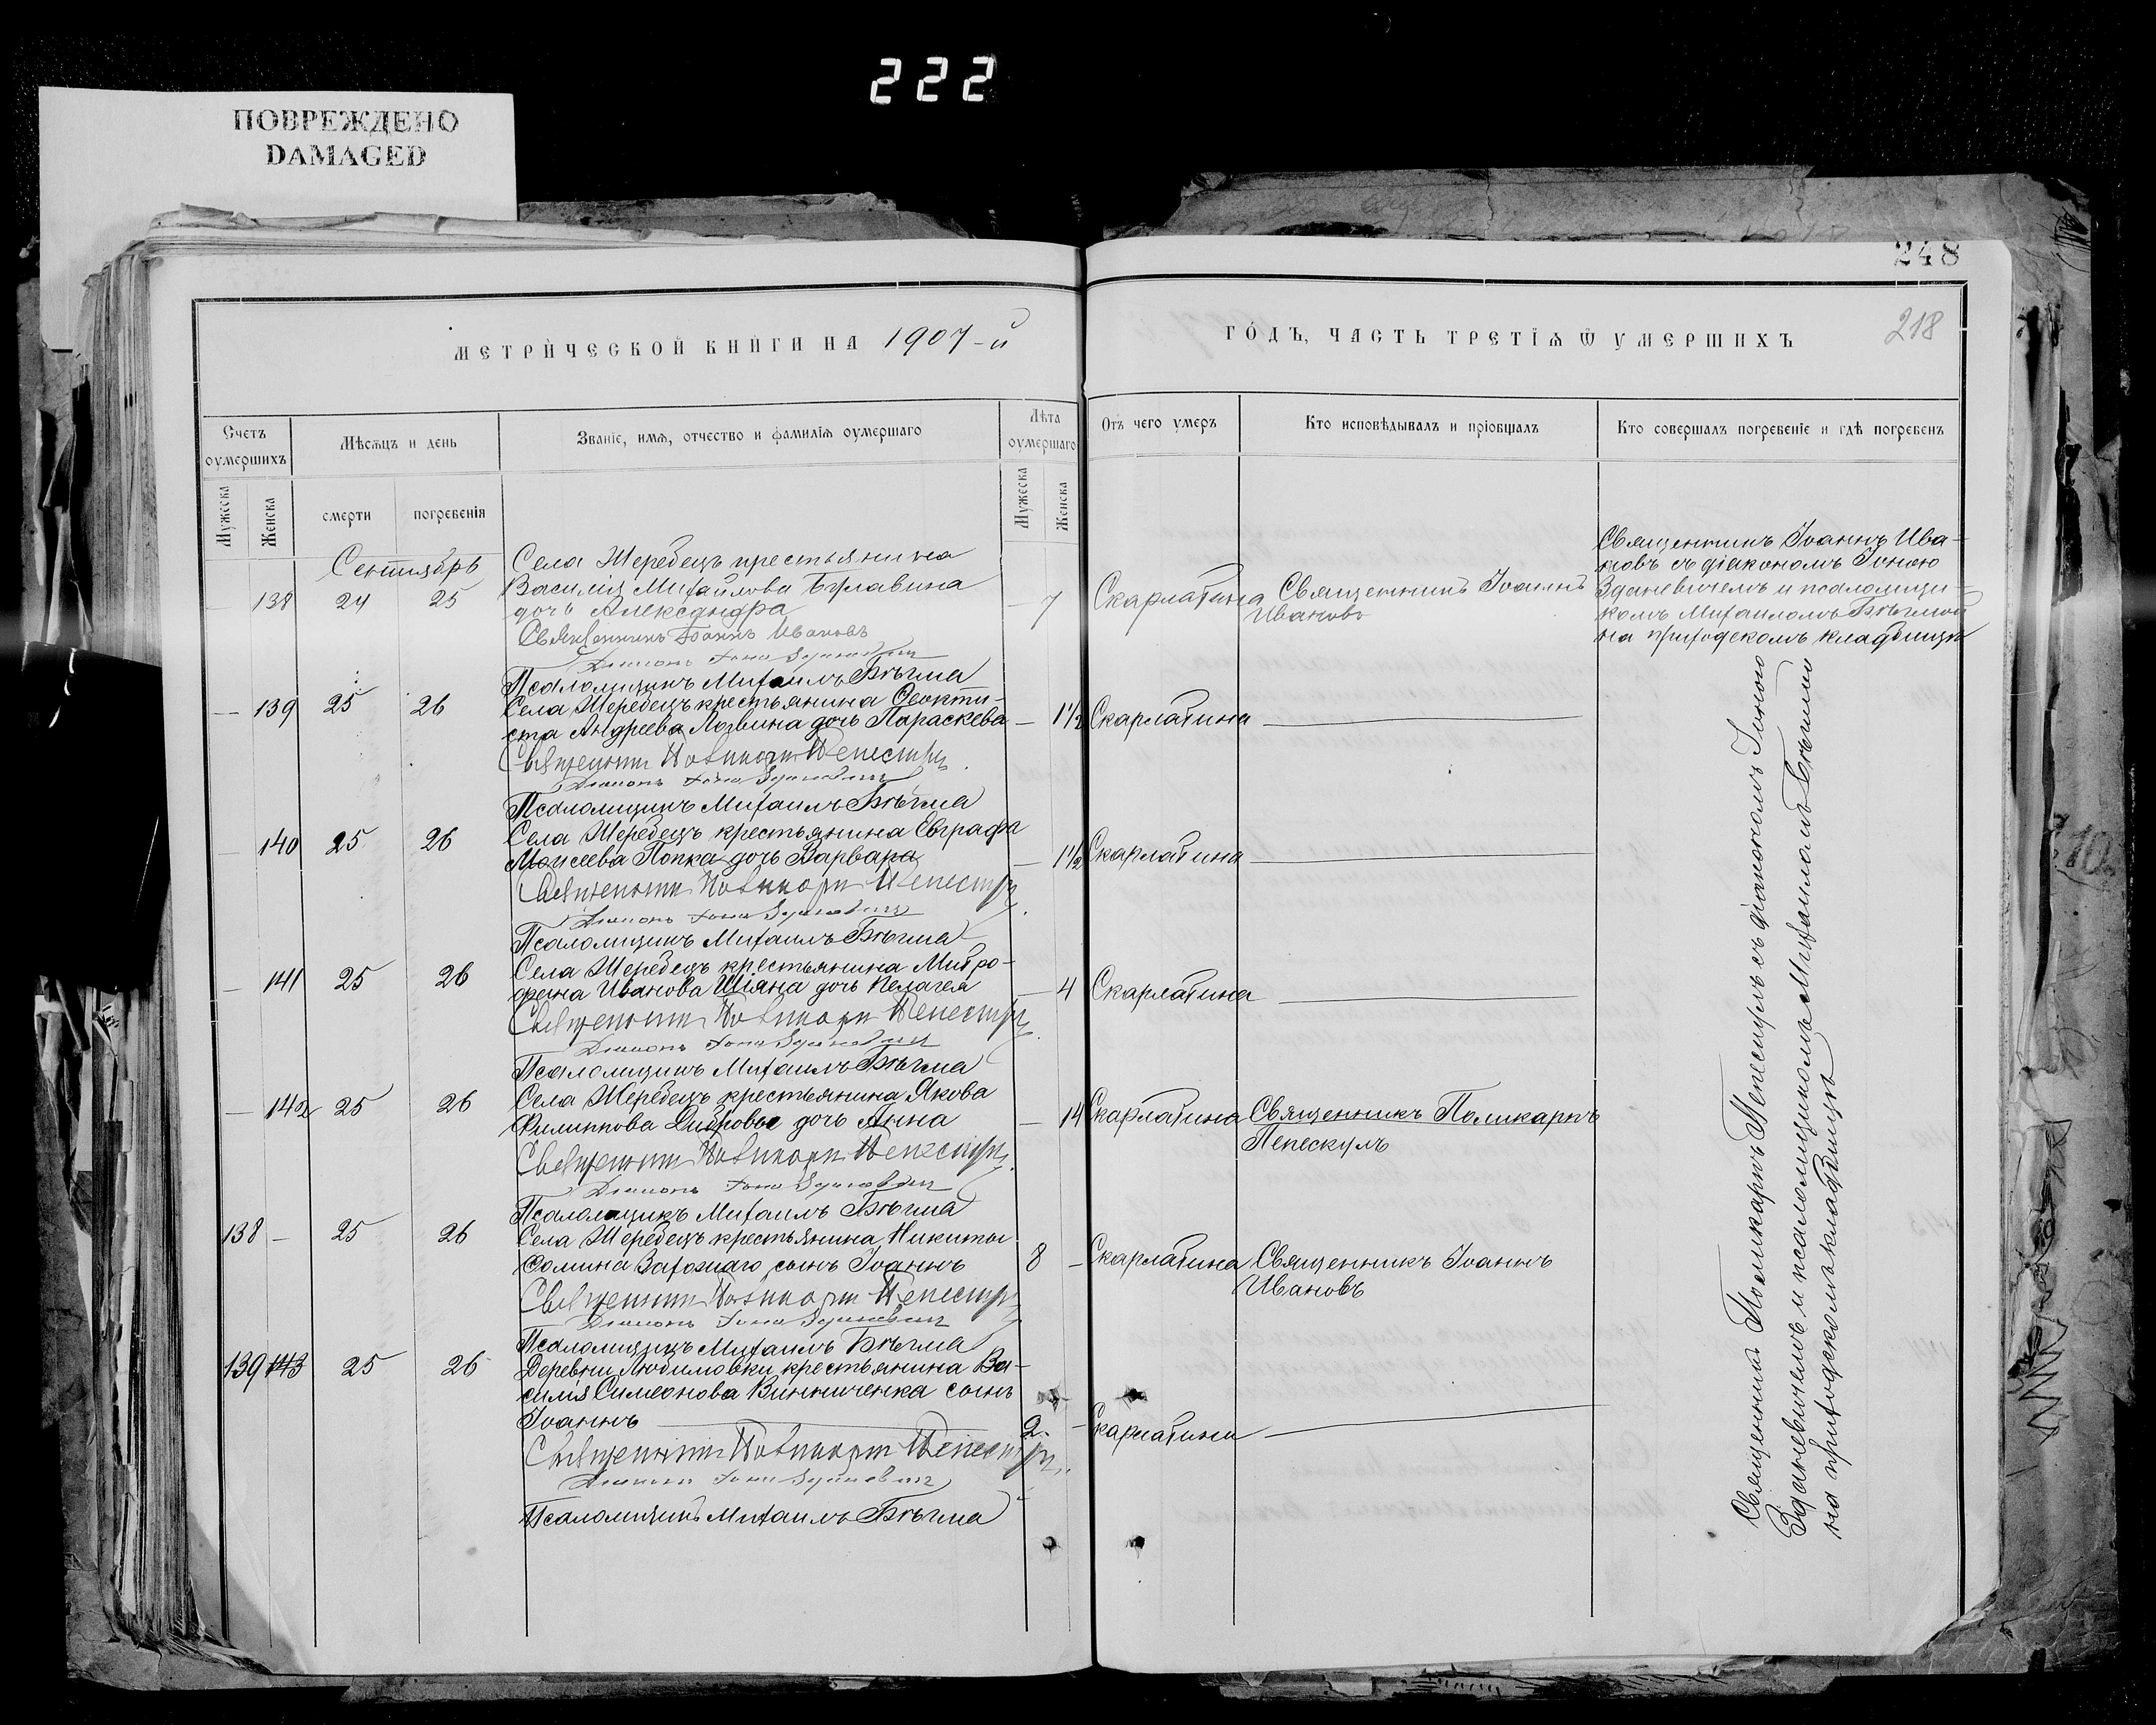 222
ПОВРЕЖДЕНО
DAMAGED
248
218
МЕТРИЧЕСКОЙ КНИГИ НА 1907-й
ГОДЪ, ЧАСТЬ ТРЕТІѦ Ѿ УМЕРШИХЪ
Счетъ оумершихъ
Мѣсяцъ и день
Званіе, имя, отчество и фамилія оумершаго
Лѣта оумершаго
Отъ чего умеръ
Кто исповѣдывалъ и пріобщалъ
Кто совершалъ погребеніе и гдѣ погребенъ
Мужеска
Женска
смерти
погребенія
Мужеска
Женска
Сентябрь
Села Жеребецъ крестьянина
Василія Михайлова Булавина
— 138 24 25 дочь Александра — 7 Скарлатина Священникъ Іоаннъ
Ивановъ
Священникъ Іоаннъ Ива-
новъ съ діакономъ Іоною
Зданевичемъ и псаломщи-
комъ Михаиломъ Бѣгмой
на приходскомъ кладбищѣ
Священникъ Іоаннъ Ивановъ
Діаконъ Іона Зданевичъ
Псаломщикъ Михаилъ Бѣгма
— 139 25 26 Села Жеребецъ крестьянина Ѳеокти-
ста Андреева Лозвина дочь Параскева — 1½ Скарлатина —
Священникъ Поликарпъ Пепескулъ
Діаконъ Іона Зданевичъ
Псаломщикъ Михаилъ Бѣгма
— 140 25 26 Села Жеребецъ крестьянина Евграфа
Моисеева Попка дочь Варвара — 1½ Скарлатина —
Священникъ Поликарпъ Пепескулъ
Діаконъ Іона Зданевичъ
Псаломщикъ Михаилъ Бѣгма
— 141 25 26 Села Жеребецъ крестьянина Митро-
фана Иванова Шіяна дочь Пелагея — 4 Скарлатина —
Священникъ Поликарпъ Пепескулъ
Діаконъ Іона Зданевичъ
Псаломщикъ Михаилъ Бѣгма
— 142 25 26 Села Жеребецъ крестьянина Якова
Филиппова Дибровы дочь Анна — 14 Скарлатина Священникъ Поликарпъ
Пепескулъ
Священникъ Поликарпъ Пепескулъ
Діаконъ Іона Зданевичъ
Псаломщикъ Михаилъ Бѣгма
138 — 25 26 Села Жеребецъ крестьянина Никиты
Ѳомина сынъ Іоаннъ 8 — Скарлатина Священникъ Іоаннъ
Ивановъ
Священникъ Поликарпъ Пепескулъ
Діаконъ Іона Зданевичъ
Псаломщикъ Михаилъ Бѣгма
139 143 25 26 Деревни Любимовки крестьянина Ва-
силія Симеонова Винниченка сынъ
Іоаннъ — 2. — Скарлатина —
Священникъ Поликарпъ Пепескулъ
Діаконъ Іона Зданевичъ
Псаломщикъ Михаилъ Бѣгма
Священникъ Поликарпъ Пепескулъ съ діакономъ Іоною
Зданевичемъ и псаломщикомъ Михаиломъ Бѣгмою
на приходскомъ кладбищѣ